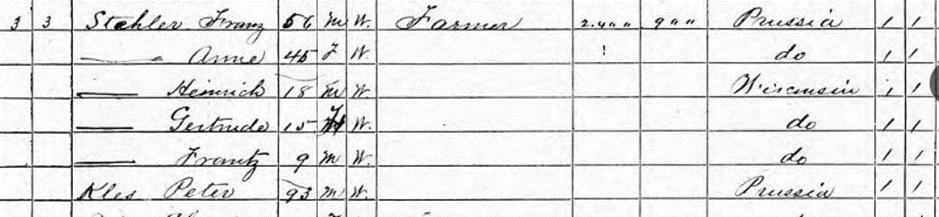 3 3 Stehler Franz 56 M W. Farmer 2.400 900 Prussia 1 1
—— Anne 45 F W. do 1 1
—— Heinrich 18 M W. Wisconsin 1 1
—— Gertrude 15 F W. do 1 1
—— Frantz 9 M W. do 1 1
Kles Peter 93 M W. Prussia 1 1